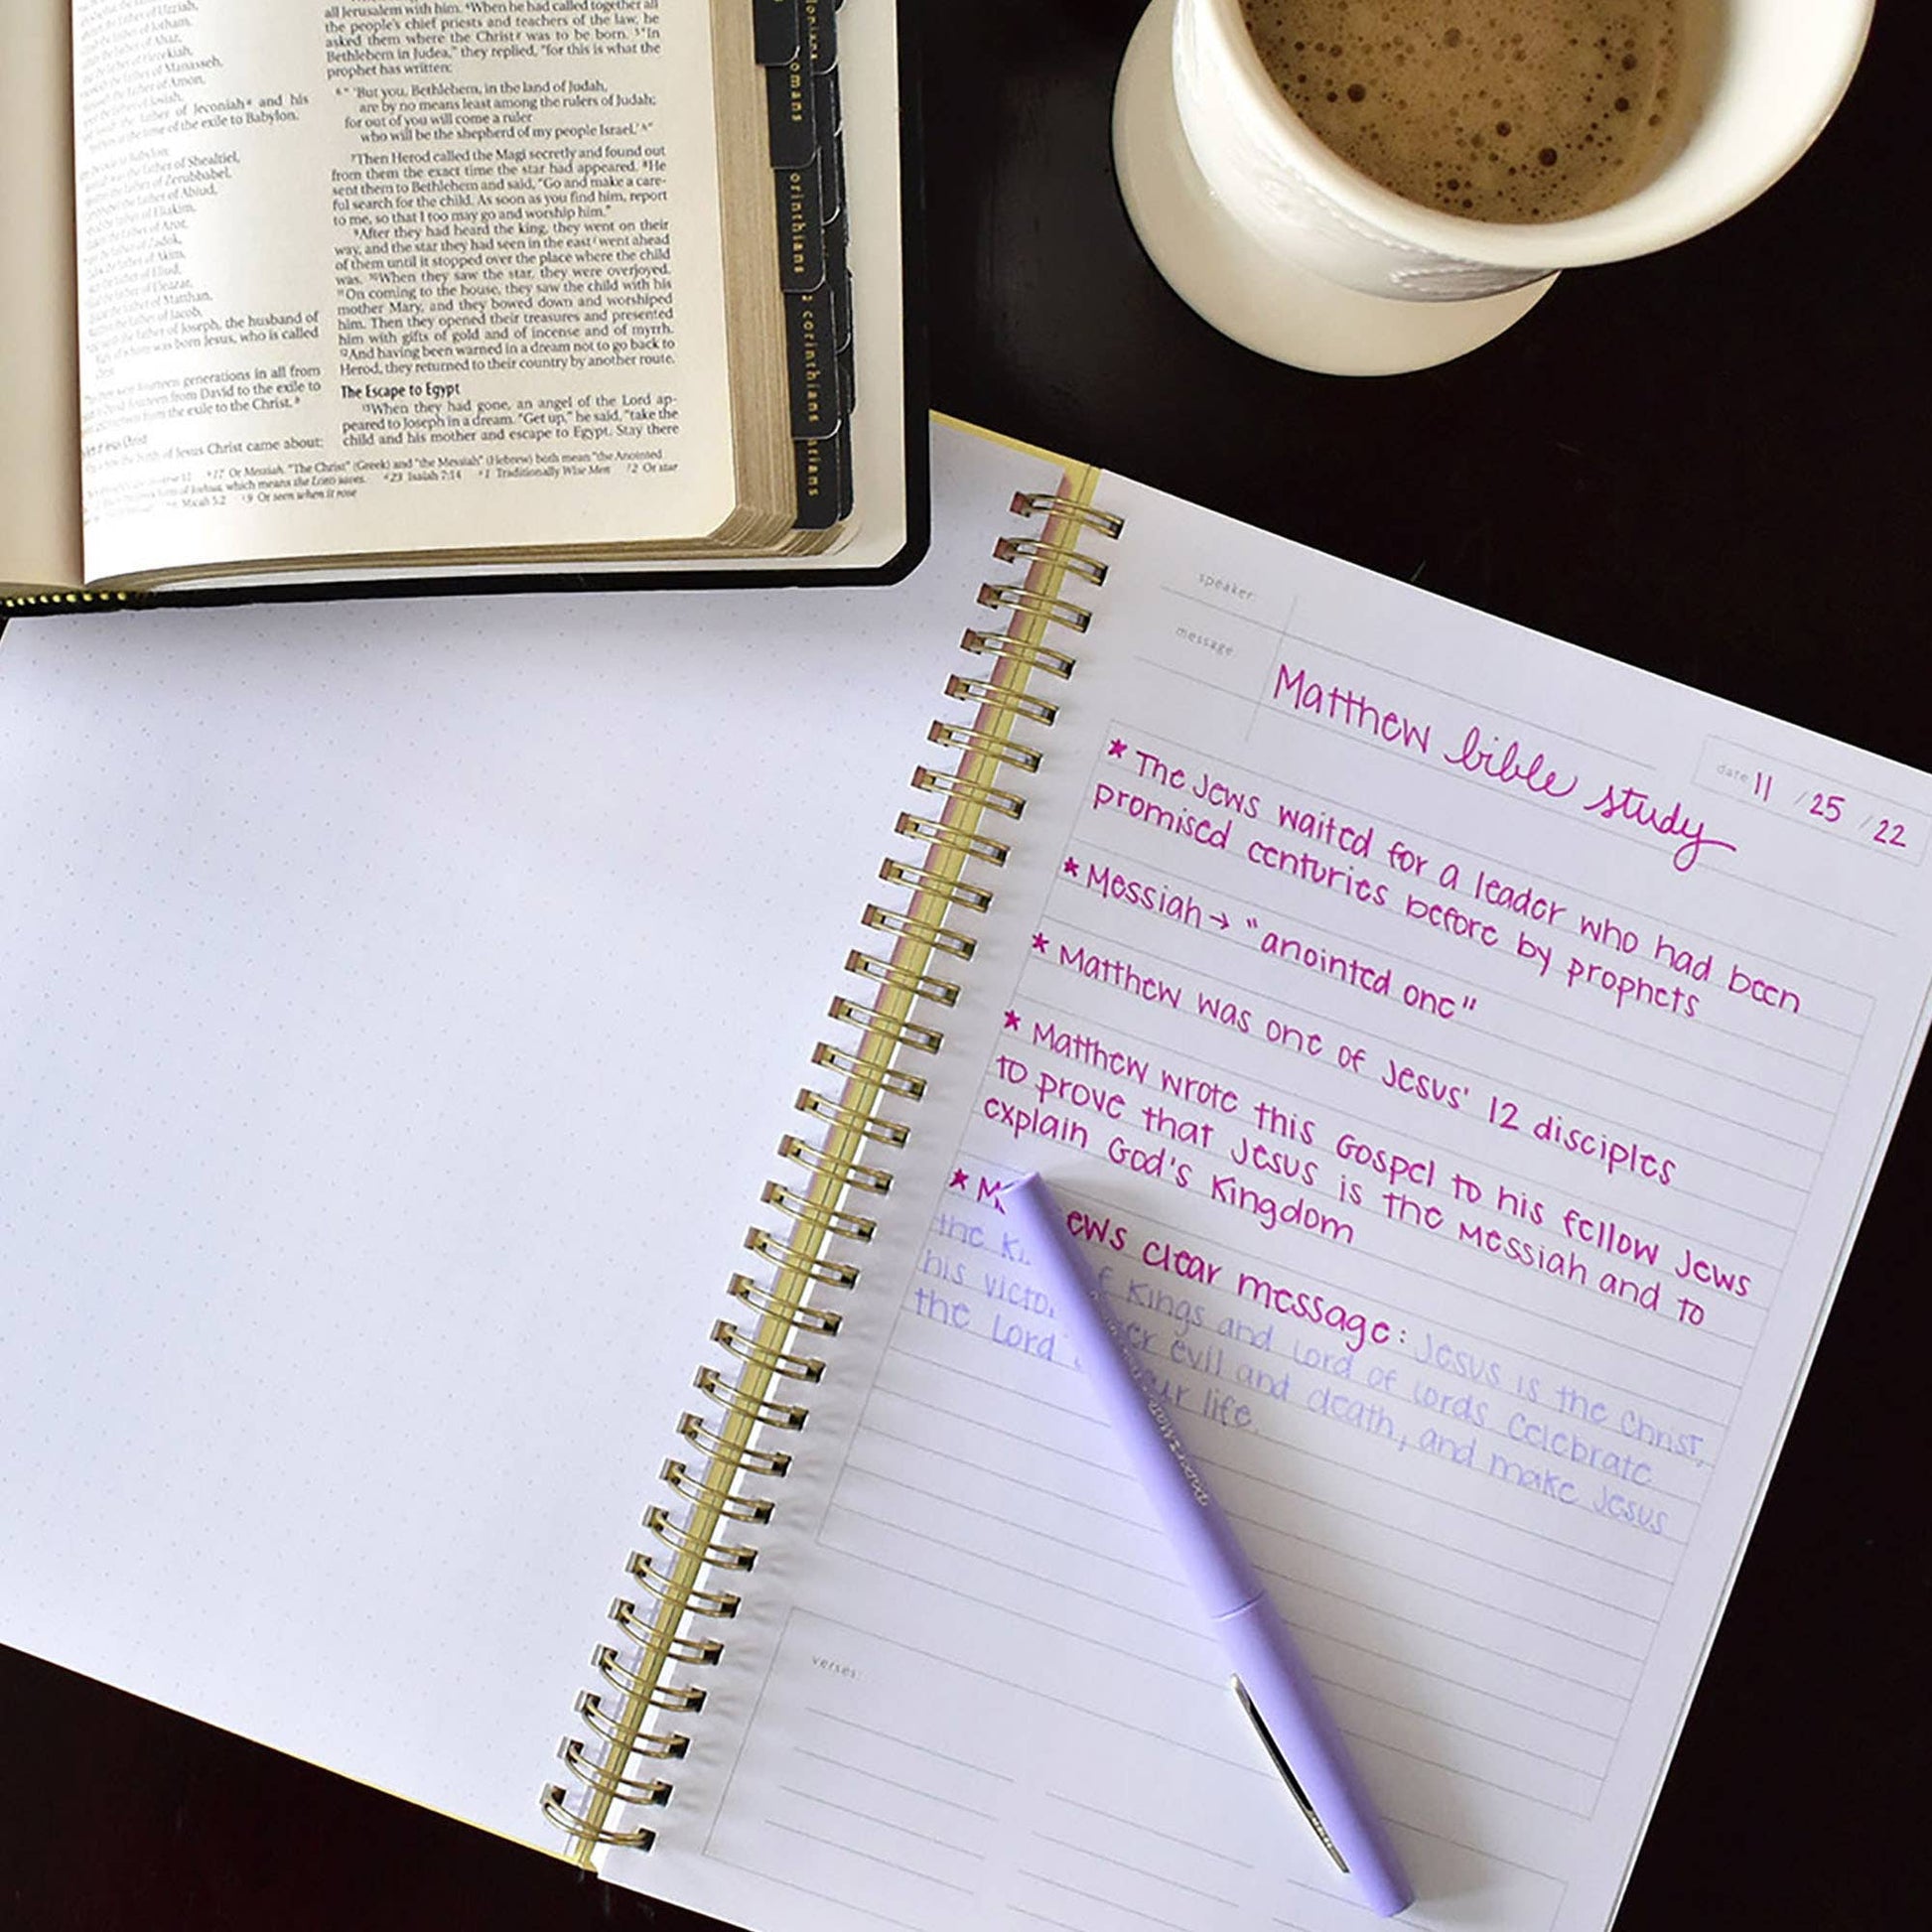 of Manasseh,
of Amon,
of Jeconiah and his
time of the exile to Babylon.
of Shealtiel,
of Zerubbabel,
of Abiud,
father of Eliakim,
father of Azor,
father of Zadok,
father of Akim,
father of Eliud,
father of Eleazar,
father of Matthan,
father of Jacob,
father of Joseph, the husband of
was born Jesus, who is called
fourteen generations in all from
fourteen from David to the exile to
from the exile to the Christ.
birth of Jesus Christ came about:
all Jerusalem with him. 4When he had called together all
the people's chief priests and teachers of the law, he
asked them where the Christ was to be born. 5"In
Bethlehem in Judea," they replied, "for this is what the
prophet has written:
6" 'But you, Bethlehem, in the land of Judah,
are by no means least among the rulers of Judah;
for out of you will come a ruler
who will be the shepherd of my people Israel.'"
7Then Herod called the Magi secretly and found out
from them the exact time the star had appeared. 8He
sent them to Bethlehem and said, "Go and make a care-
ful search for the child. As soon as you find him, report
to me, so that I too may go and worship him."
9After they had heard the king, they went on their
way, and the star they had seen in the east went ahead
of them until it stopped over the place where the child
was. 10When they saw the star, they were overjoyed.
11On coming to the house, they saw the child with his
mother Mary, and they bowed down and worshiped
him. Then they opened their treasures and presented
him with gifts of gold and of incense and of myrrh.
12And having been warned in a dream not to go back to
Herod, they returned to their country by another route.
The Escape to Egypt
13When they had gone, an angel of the Lord ap-
peared to Joseph in a dream. "Get up," he said, "take the
child and his mother and escape to Egypt. Stay there
17 Or Messiah. "The Christ" (Greek) and "the Messiah" (Hebrew) both mean "the Anointed
which means the LORD saves. 23 Isaiah 7:14 1 Traditionally Wise Men 2 Or star
Micah 5:2 9 Or seen when it rose
omans
orinthians
2 corinthians
speaker:
message:
Matthew bible study
date 11 / 25 / 22
* The Jews waited for a leader who had been
promised centuries before by prophets
* Messiah → "anointed one"
* Matthew was one of Jesus' 12 disciples
* Matthew wrote this Gospel to his fellow Jews
to prove that Jesus is the Messiah and to
explain God's Kingdom
* M ews clear message: Jesus is the Christ,
the Ki f Kings and Lord of Lords Celebrate
his victo er evil and death, and make Jesus
the Lord ur life.
paper mate
verses: